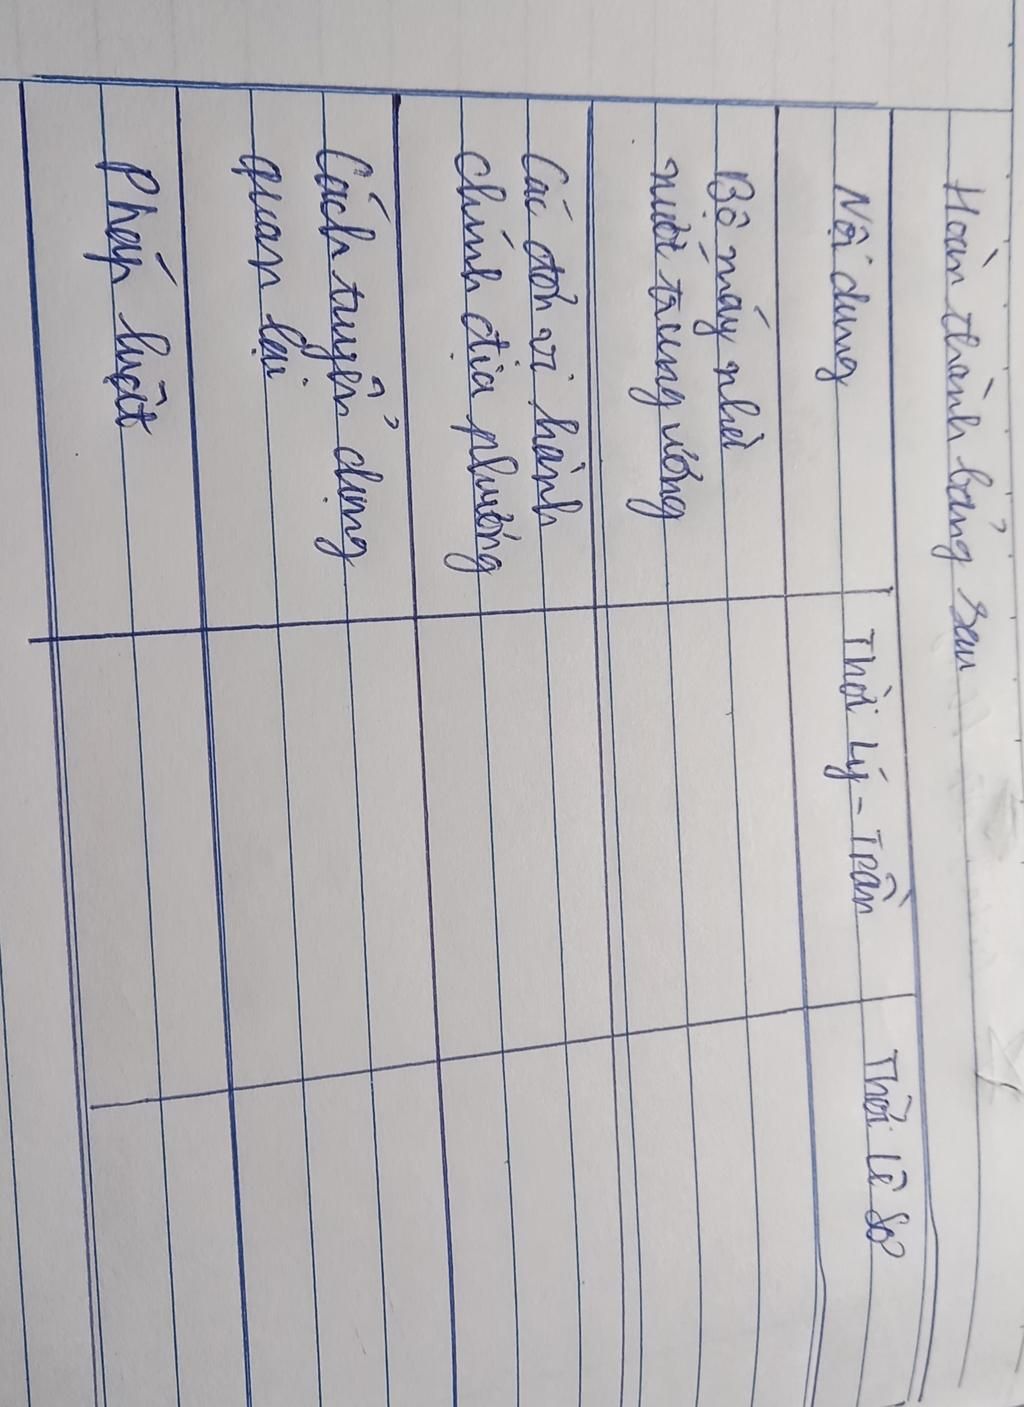 Hoàn thành bảng sau
Nội dung
Thời Lý - Trần
Thời Lê Sơ
Bộ máy nhà
nước trung ương
Các đơn vị hành
chính địa phương
Cách tuyển dụng
quan lại
Pháp luật